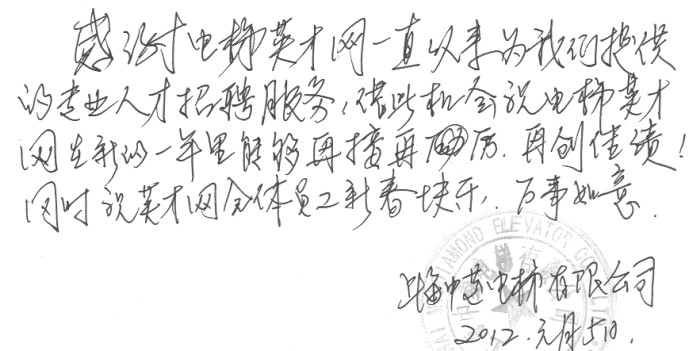 感谢电梯英才网一直以来为我们提供
的专业人才招聘服务，借此机会祝电梯英才
网在新的一年里能够再接再厉、再创佳绩！
同时祝英才网全体员工新春快乐，万事如意.
上海中菱电梯有限公司
2012.元月5日.
AMOND ELEVATOR CO. LTD